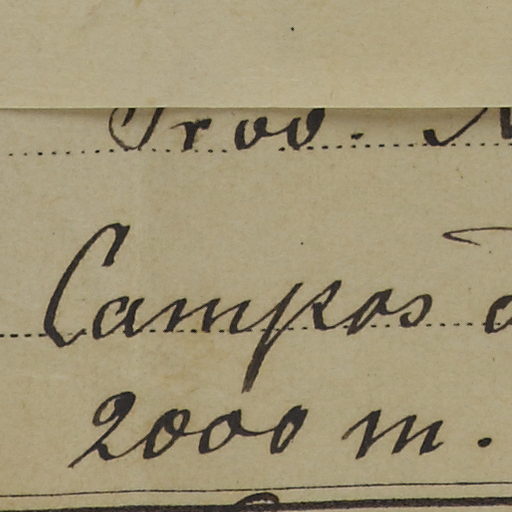 Prov.
Campos
2000 m.